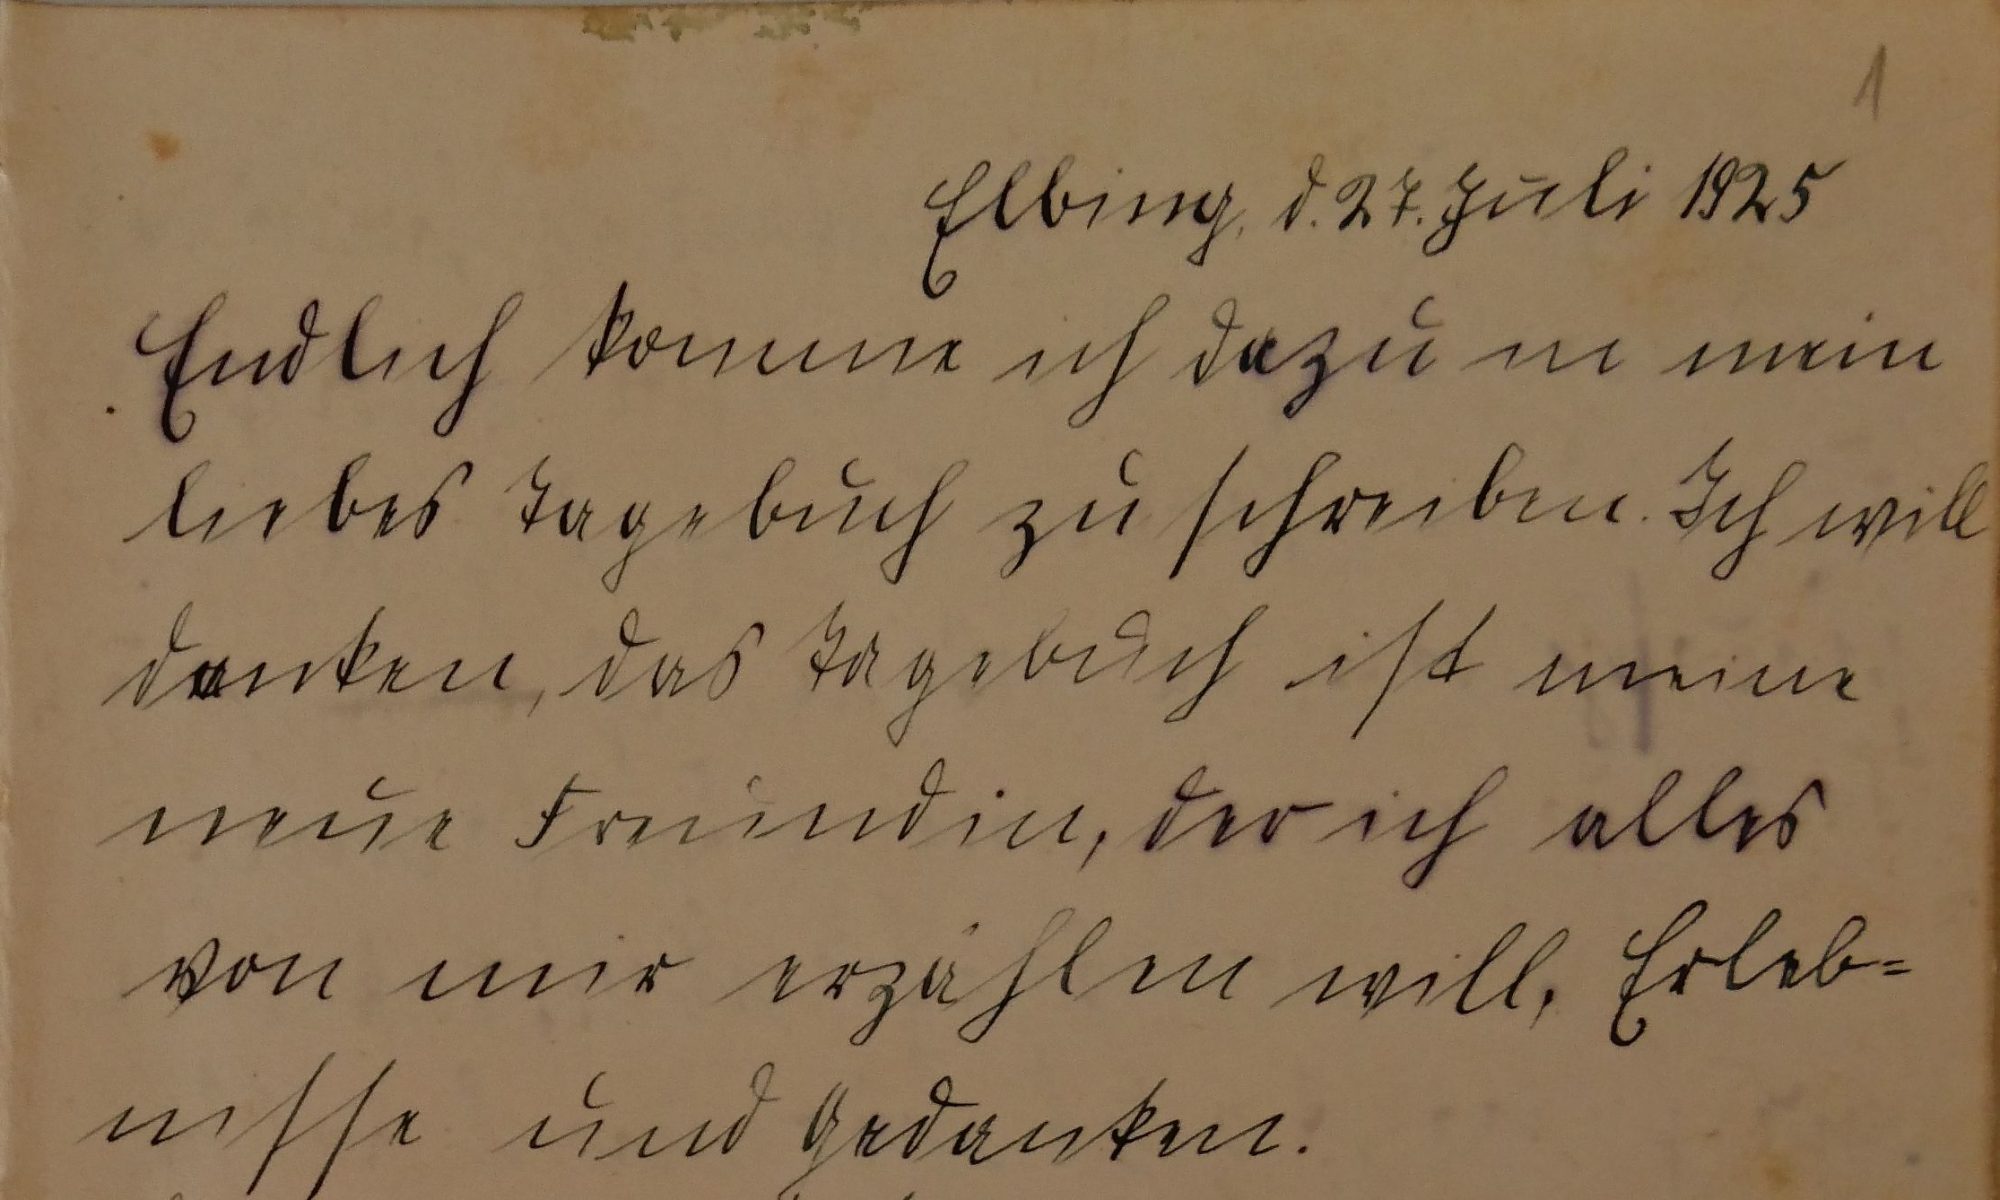 1
Elbing, d. 27. Juli 1925
Endlich komme ich dazu in mein
liebes Tagebuch zu schreiben. Ich will
denken, das Tagebuch ist meine
neue Freundin, der ich alles
von mir erzählen will, Erleb=
nisse und Gedanken.